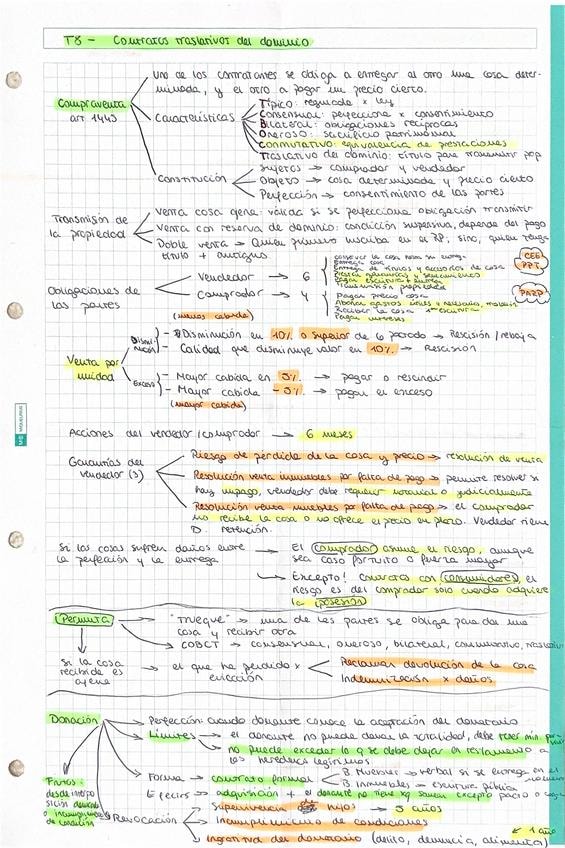 T8 - Contratos traslativos del dominio
Uno de los contratantes se obliga a entregar al otro una cosa deter-
minada, y el otro a pagar un precio cierto.
Compraventa
art 1445
Características
Típico: regulado x ley
Consensual: perfecciona x consentimiento
Bilateral: obligaciones recíprocas
Oneroso: sacrificio patrimonial
Conmutativo: equivalencia de prestaciones
Traslativo del dominio: título para transmitir prop
Constitución
Sujetos → comprador y vendedor
Objeto → cosa determinada y precio cierto
Perfección → consentimiento de las partes
Transmisión de
la propiedad
Venta cosa ajena: válida si se perfecciona obligación transmitir
Venta con reserva de dominio: condición suspensiva, depende del pago
Doble venta → Quien primero inscriba en el RP, sino, quien tenga
título + antiguo
Obligaciones de
las partes
Vendedor → 6
Entrega cosa
CEE
PPT
Comprador → 4
Pagar precio cosa
Pagar intereses
PARP
(menos cabida)
Venta por
unidad
Disminución
- Disminución en 10% o superior de lo pactado → Rescisión / rebaja
- Calidad que disminuye valor en 10% → Rescisión
Exceso
- Mayor cabida en 5% → pagar o rescindir
- Mayor cabida - 5% → pagar el exceso
(mayor cabida)
Acciones del vendedor / comprador → 6 meses
Garantías del
vendedor (3)
Riesgo de pérdida de la cosa y precio → resolución de venta
Resolución venta inmuebles por falta de pago → permite resolver si
hay impago, vendedor debe requerir notarial o judicialmente
Resolución venta muebles por falta de pago → el comprador
no recibe la cosa o no ofrece el precio en plazo. Vendedor tiene
D. retención.
Si las cosas sufren daños entre
la perfección y la entrega
→ El comprador asume el riesgo, aunque
sea caso fortuito o fuerza mayor
→ Excepto! Contratos con consumidores, el
riesgo es del comprador solo cuando adquiere
la posesión
Permuta
"Trueque" → una de las partes se obliga para dar una
cosa y recibir otra
COBCT → consensual, oneroso, bilateral, conmutativo, traslativo
Si la cosa
recibida es
ajena
→ el que ha perdido x
evicción
Reclamar devolución de la cosa
Indemnización x daños
Donación
Perfección: cuando donante conoce la aceptación del donatario
Límites → el donante no puede donar la totalidad, debe tener min.
no puede exceder lo q se debe dejar en testamento a
los herederos legítimos.
Forma → contrato formal
B. Muebles → verbal si se entrega en el
B. Inmuebles → escritura pública
Efectos → adquisición + el donante no tiene xq sanear excepto pacto o
Frutos:
desde interpo
sición demanda
incumplimiento
de condición
Revocación
Supervivencia hijos → 5 años
Incumplimiento de condiciones
Ingratitud del donatario (delito, denuncia, alimentos)
1 año
MIQUELRIUS